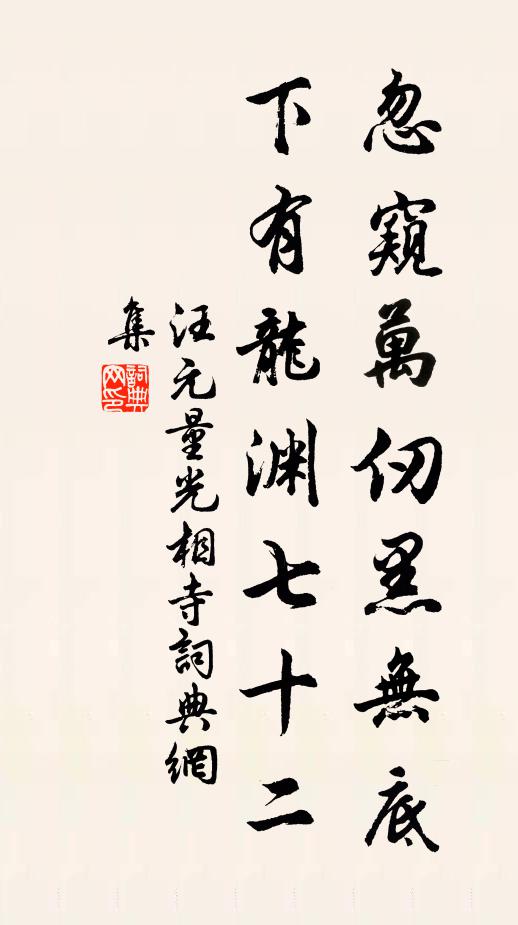 忽窺萬仞黑無底
下有龍渊七十二
汪元量光相寺詞典網
集
詞典
网印